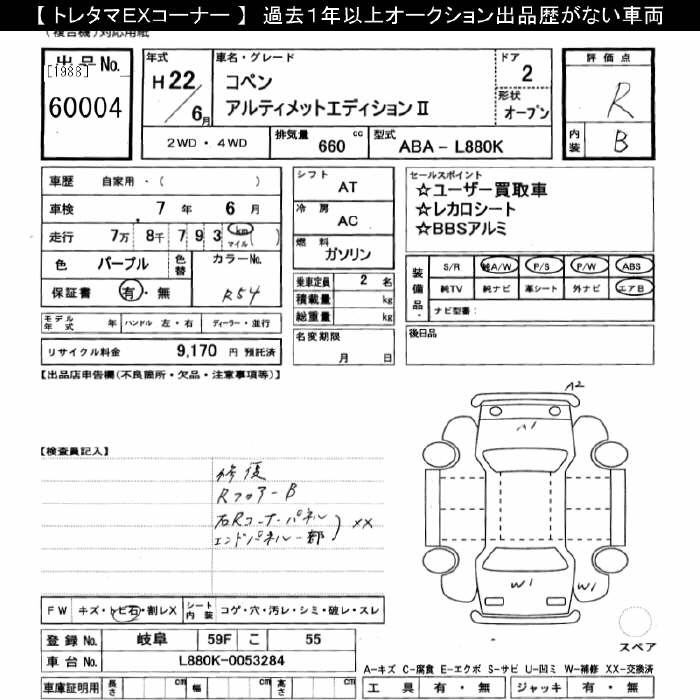 【 トレタマEXコーナー 】 過去1年以上オークション出品歴がない車両
(複合機)対応用紙
出品No.
[1988]
60004
年式
H22/6月
車名・グレード
コペン
アルティメットエディションⅡ
ドア
2
形状
オープン
2WD・4WD
排気量 660 cc
型式 ABA-L880K
評価点
R
内装 B
車歴 自家用・( )
車検 7年 6月
走行 7万 8千 7 9 3 km マイル ( )
色 パープル 色替
カラーNo.
R54
保証書 有・無
モデル年式 年 ハンドル 左・右 ディーラー・並行
リサイクル料金 9,170 円 預託済
シフト AT
冷房 AC
燃料 ガソリン
乗車定員 2 名
積載量 kg
総重量 kg
名変期限
月 日
セールスポイント
☆ユーザー買取車
☆レカロシート
☆BBSアルミ
装備品
S/R 純A/W P/S P/W ABS
純TV 純ナビ 革シート 外ナビ エアB
ナビ型番:
後日品
【出品店申告欄(不良箇所・欠品・注意事項等)】
【検査員記入】
修復
Rフロアー B
右Rコーナーパネル
エンドパネル一部 ) XX
A2
A1
W1
W1
スペア
FW キズ・トビ石・割レX シート内装 コゲ・穴・汚レ・シミ・破レ・スレ
登録No. 岐阜 59F こ 55
車台No. L880K-0053284
車庫証明用 長さ cm 幅 cm 高さ cm
A-キズ C-腐食 E-エクボ S-サビ U-凹ミ W-補修 XX-交換済
工具 有・無 ジャッキ 有・無